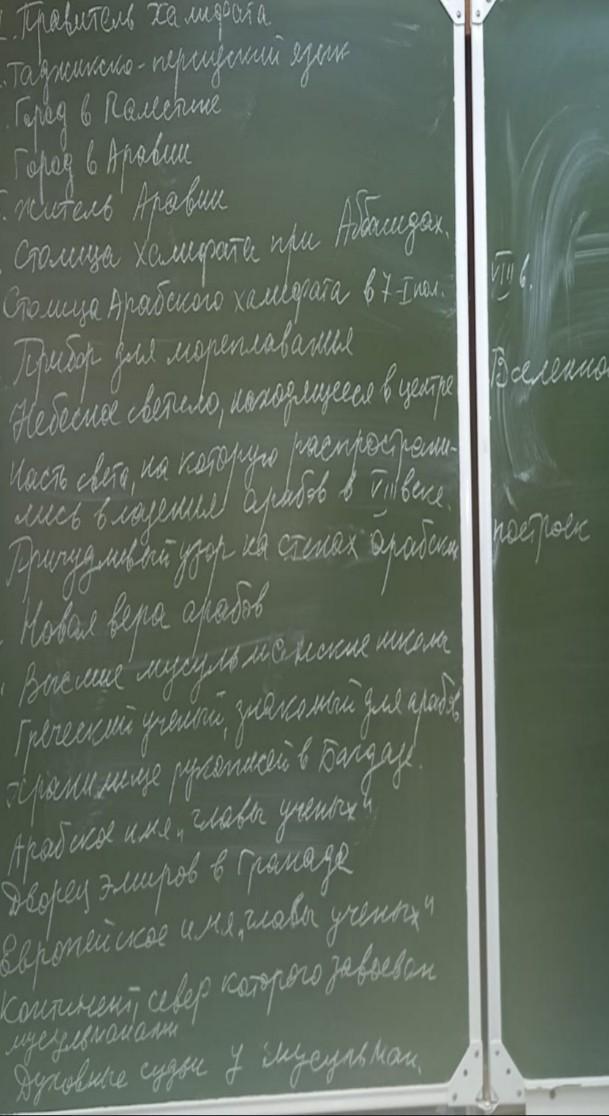 1. Правитель Халифата
Таджикско-персидский язык
Город в Палестине
Город в Аравии
Житель Аравии
Столица халифата при Аббасидах.
Столица Арабского халифата в 7-I пол. VIII в.
Прибор для мореплаванья
Небесное светило, находящееся в центре Вселенной
Часть света, на которую распространи-
лись владения арабов в VIII веке.
Причудливый узор на стенах арабских построек
Новая вера арабов
Высшие мусульманские школы
Греческий ученый, знакомый для арабов
Хранилище рукописей в Багдаде.
Арабское имя „главы ученых"
Дворец эмиров в Гранаде
Европейское имя „главы ученых"
Континент, север которого завоеван
мусульманами
Духовные судьи у мусульман.